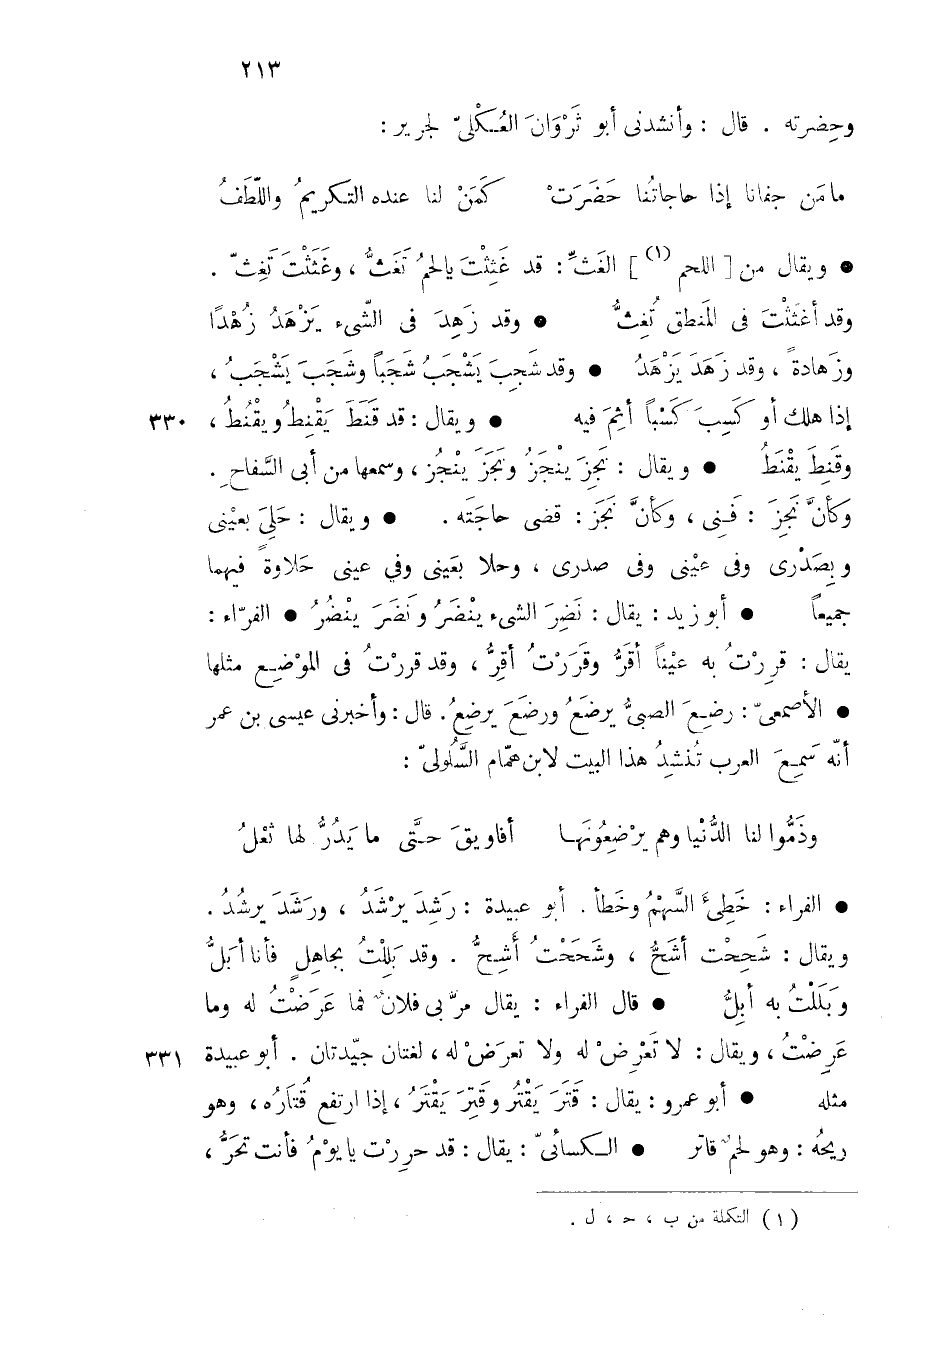 ٢١٣
وحِضرته . قال : وأنشدنى أبو ثَرْوَانَ العُكْلىّ لجرير :
ما مَن جفانا إذا حاجاتُنا حَضَرَتْ كَمَنْ لنا عنده التكريمُ واللّطَفُ
● ويقال من [ اللحم (١) ] الغَثِّ : قد غَثِثْتَ يالحمُ تَغَثُّ ، وغَثَثْتَ تَغِثّ .
وقد أغثَثْتَ فى المَنطق تُغِثُّ ● وقد زَهِدَ فى الشّىء يَزْهَدُ زُهْدًا
وزَهادةً ، وقد زَهَدَ يَزْهَدُ ● وقد شَجِبَ يَشْجَبُ شَجَباً وشَجَبَ يَشْجُبُ ،
إذا هلك أو كَسِبَ كَسْباً أثِمَ فيه ● ويقال : قد قَنَطَ يَقْنِطُ ويقْنُطُ ، ٣٣٠
وقَنِطَ يقْنَطُ ● ويقال : نَجِزَ ينْجَزُ ونَجَزَ ينْجُز ، وسمعها من أبى السَّفاح .
وَكأنَّ نَجِزَ : فَنِى ، وكأنَّ نَجَزَ : قضى حاجَته . ● ويقال : حَلِىَ بعيْنى
وبِصَدْرى وفى عيْنى وفى صدرى ، وحلا بعَينى وفي عينى حَلاوةً فيهما
جميعاً ● أبو زيد : يقال : نَضِرَ الشىء ينْضَرُ ونَضَرَ ينْضُرُ ● الفرّاء :
يقال : قرِرْتُ به عيْناً أقَرُّ وقَرَرْتُ أقِرُّ ، وقد قررْتُ فى الموْضِع مثلها
● الأصمعىّ : رضِعَ الصبىُّ يرضَعُ ورضَعَ يرضِعُ. قال : وأخبرنى عيسى بن عمر
أنّه سَمِعَ العرب تُنشِدُ هذا البيت لابن همّام السَّلُولىّ :
وذَمُّوا لنا الدُّنْيا وهم يرْضِعُونَها أفاويقَ حتَّى ما يَدُرُّ لها ثعْلُ
● الفراء : خَطِئَ السَّهْمُ وخَطأ . أبو عبيدة : رَشِدَ يرْشَدُ ، ورَشَدَ يرشُدُ .
ويقال : شَحِحْت أشَحُّ ، وشَحَحْتُ أُشِحُّ . وقد بَلِلْتُ بجاهلٍ فأنا أبَلُّ
وَبَلَلْتُ به أبِلُّ ● قال الفراء : يقال مرّ بى فلانٌ فما عَرَضْتُ له وما
عَرِضْتُ ، ويقال : لا تَعْرِضْ له ولا تعرَضْ له ، لغتان جيّدتان . أبو عبيدة ٣٣١
مثله ● أبو عمرو : يقال : قَتَرَ يَقْتُر وقَتِرَ يَقْتَرُ ، إذا ارتفع قُتَارُه ، وهو
ريحُه : وهو لحمٌ قاتر ● الكسائىّ : يقال : قد حرِرْت يا يوْمُ فأنت تحَرُّ ،
(١) التكملة من ب ، ح ، ل .